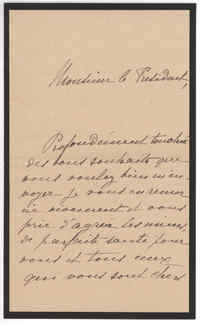 Monsieur le Président,
Profondément touchée
des bons souhaits que
vous voulez bien m'en-
voyer je vous en remer-
cie vivement et vous
prie d'agréer les miens,
de parfaite santé pour
vous et tous ceux
qui vous sont chers